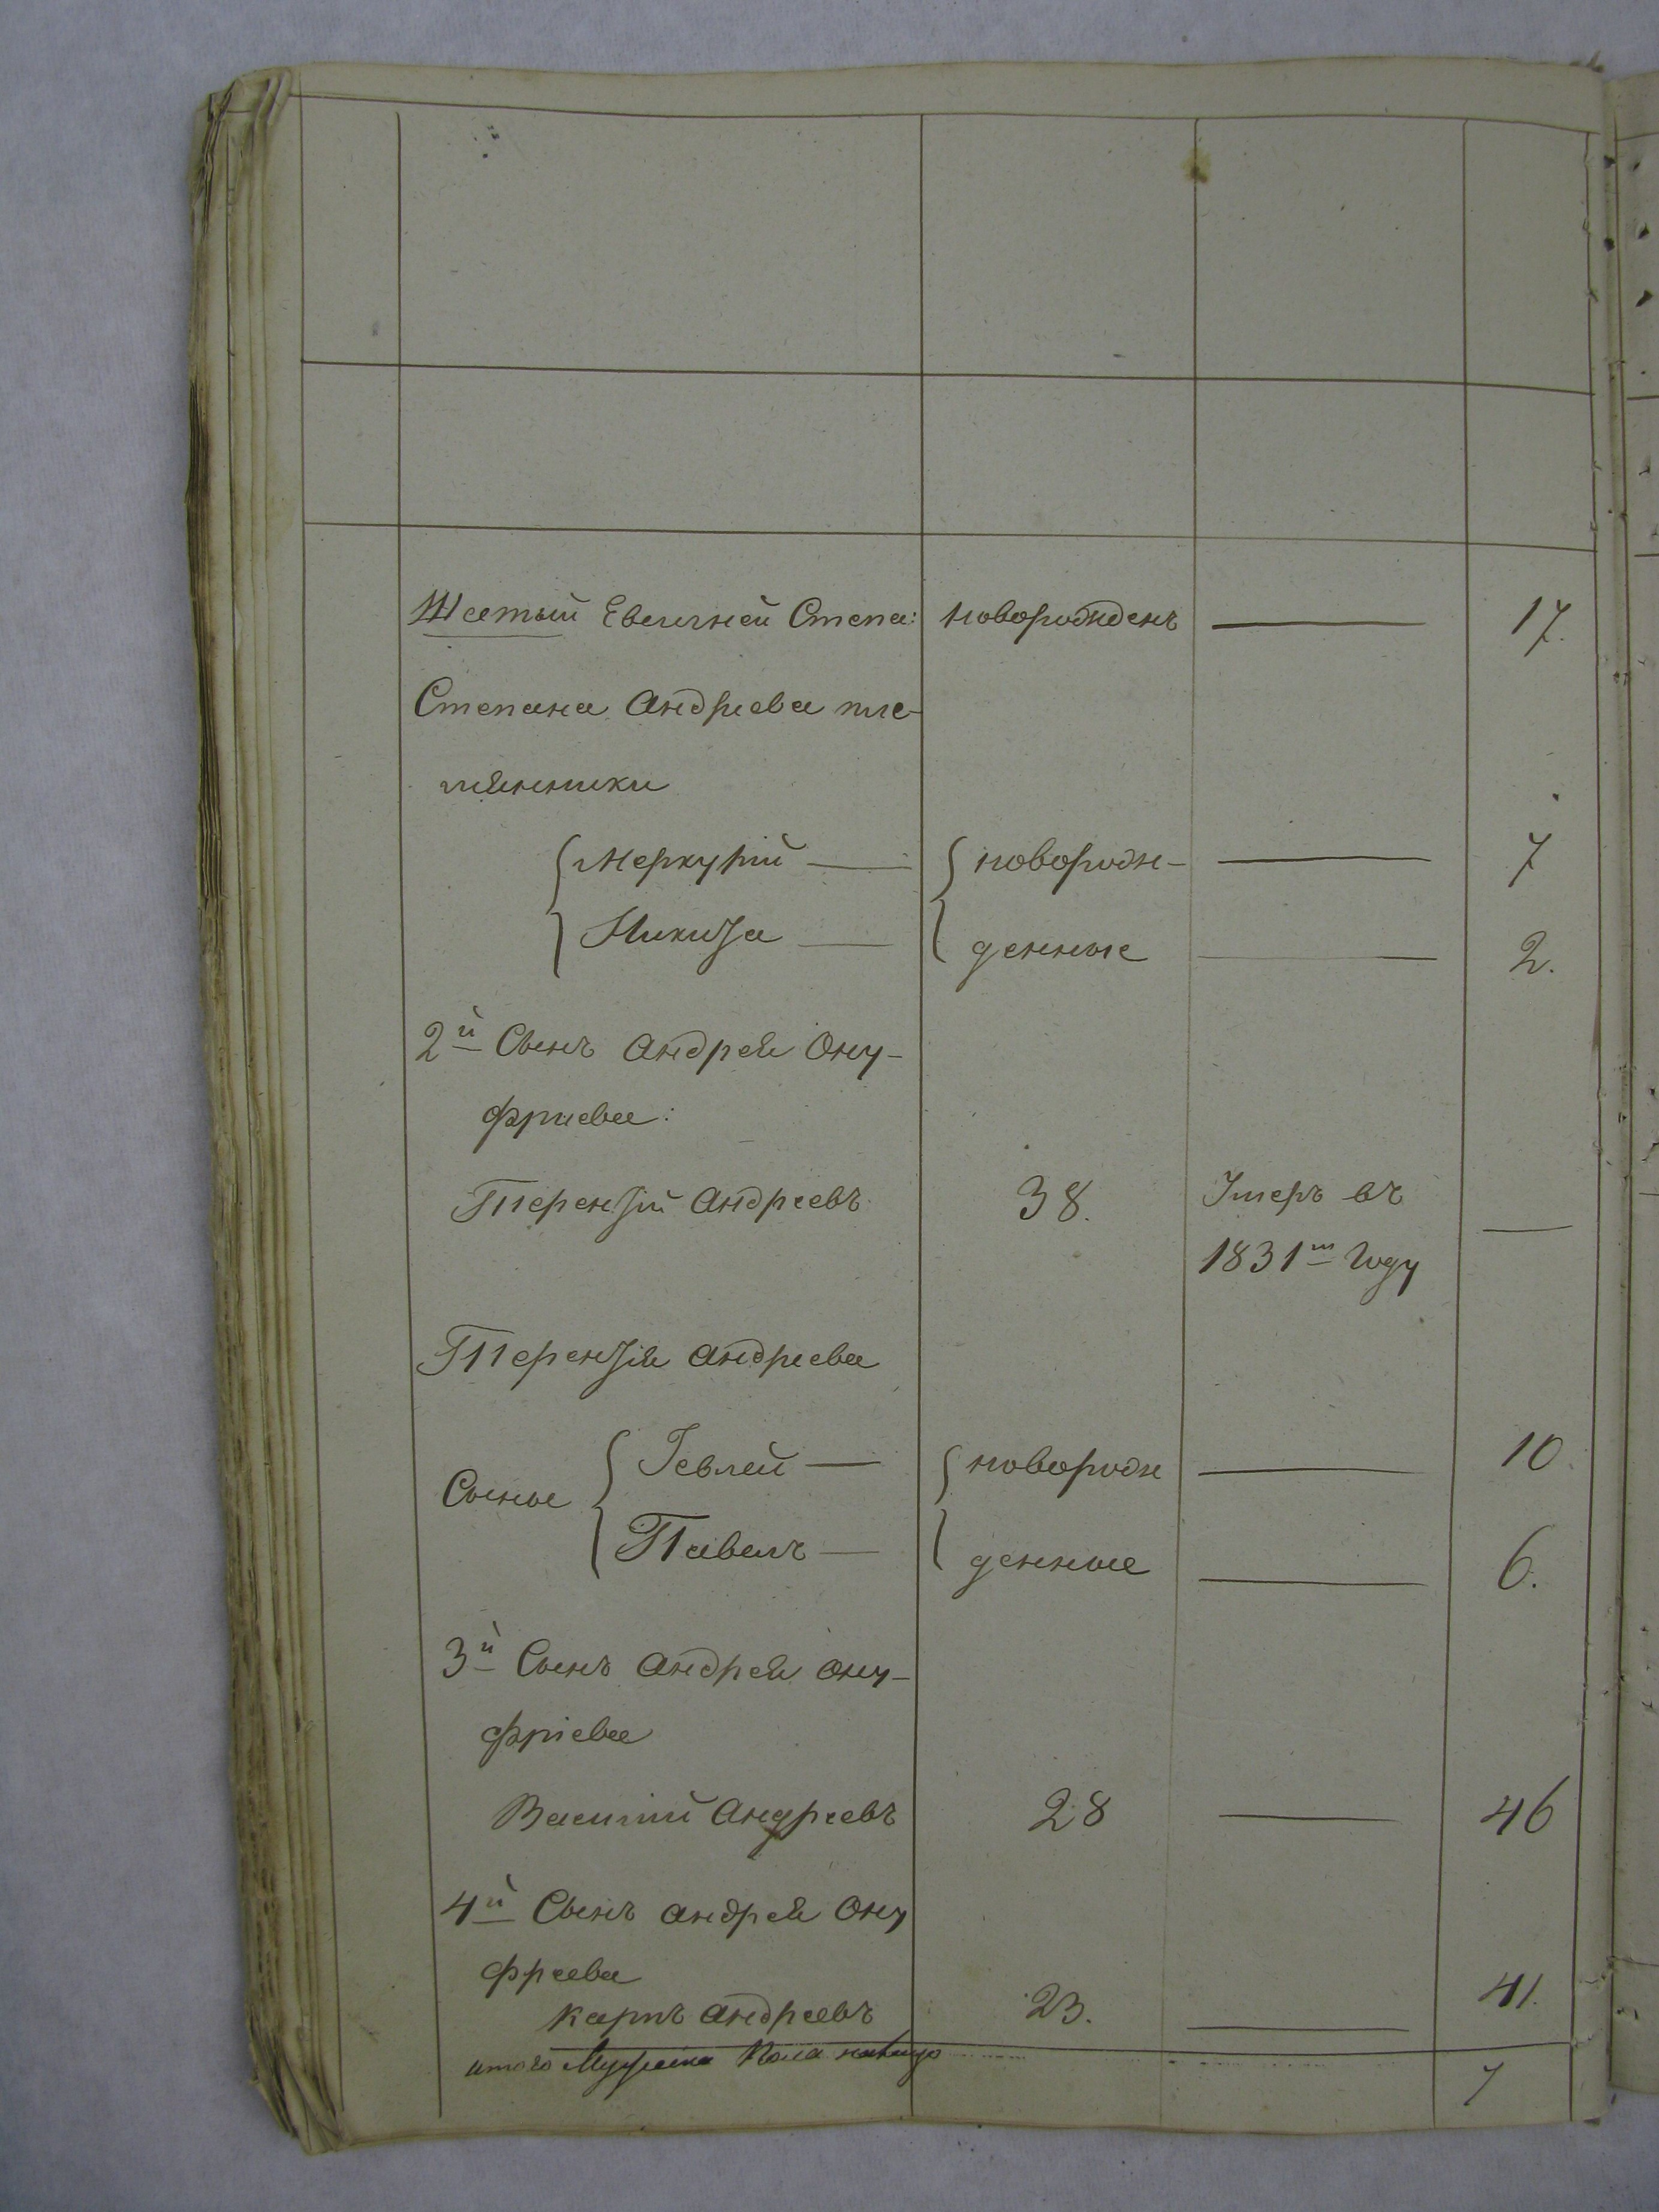 Шестый Евгеней Степа: новорожденъ — 17.
Степана Андреева пле-
мянники
Меркурій — новорож- — 7
Никита — денные — 2.
2й Сынъ Андрея Ону-
фриева:
Терентій Андреевъ 38. Умеръ въ —
1831м году
Терентія Андреева
Сыны Іевлей — новорож — 10.
Павелъ — денные — 6.
3й Сынъ Андрея Ону-
фріева
Василий Андреевъ 28 — 46
4й Сынъ Андрея Ону
фреева
Карпъ Андреевъ 23. — 41.
итого Мужеска Пола налицо 7